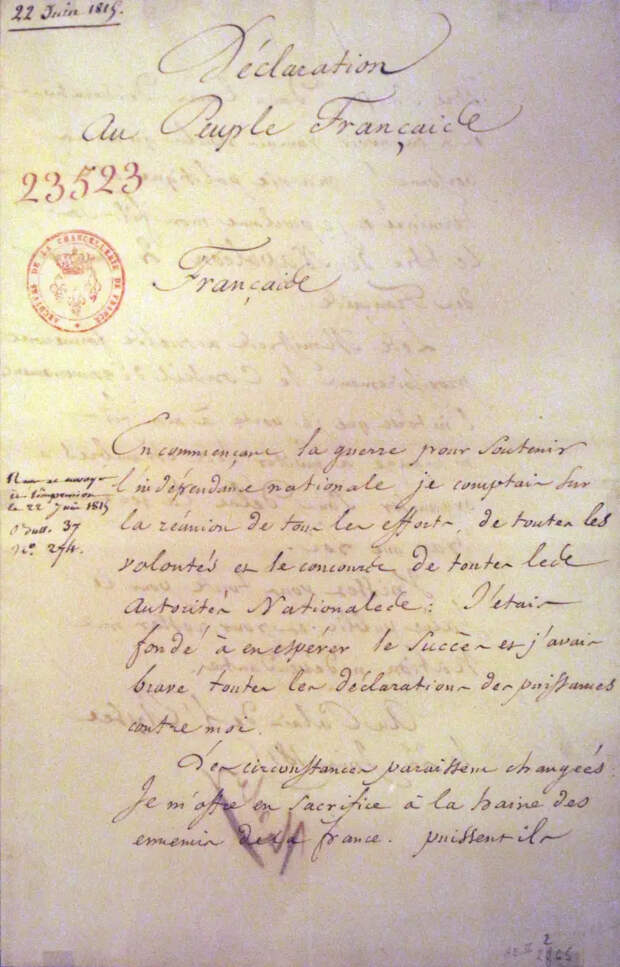 22 Juin 1815.
Déclaration
au Peuple Français
23523
ARCHIVES DE LA CHANCELLERIE DE FRANCE
Français
En commençant la guerre pour soutenir
l'indépendance nationale je comptais sur
la réunion de tous les efforts, de toutes les
volontés et le concours de toutes les
autorités Nationales: J'étais
fondé à en espérer le succès et j'avais
bravé toutes les déclarations des puissances
contre moi.
Des circonstances paraissent changées.
Je m'offre en sacrifice à la haine des
ennemis de la france. puissent ils
l'impression
le 22 Juin 1815
Bull. 37
N.° 274.
2